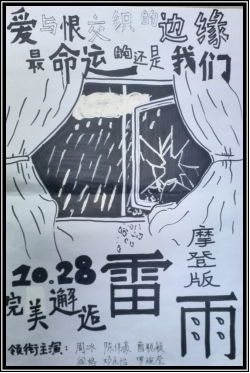 爱与恨交织的边缘
最命运的还是我们
摩登版
雷雨
10.28
完美邂逅
领衔主演：周冰